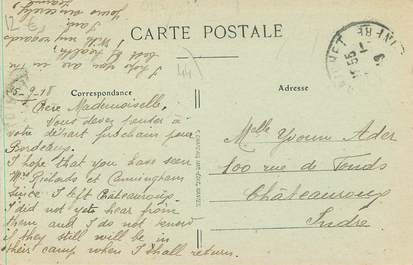 CARTE POSTALE
Correspondance
Adresse
15-9-18
Chère Mademoiselle.
Vous devez penser à
votre départ prochain pour
Bordeaux.
I hope that you have seen
Mrs Rilods et Cunningham
since I left Châteauroux.
I did not yet hear from
them and I do not know
if they still will be in
their camp when I shall return.
I hope you are in the
best of health,
with my regards
Yours sincerely
Melle Yvonne Ader
100 rue de
Châteauroux
Indre